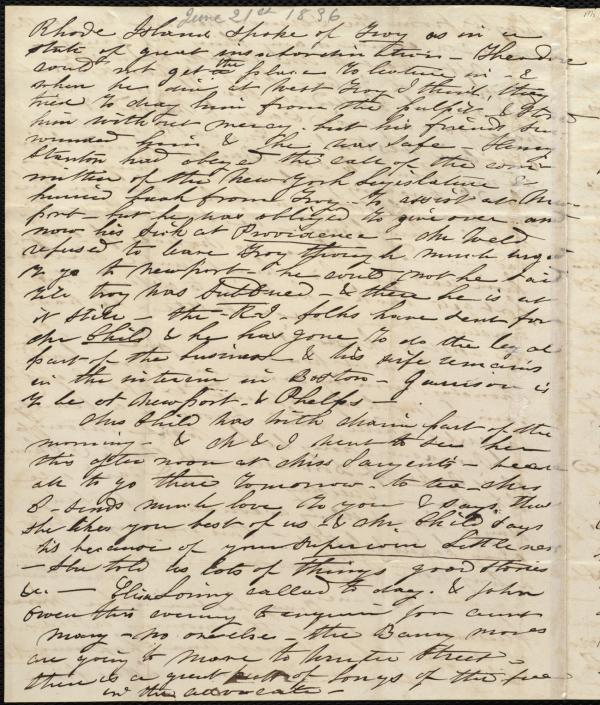 June 21st 1836
Rhode Island spoke of Troy as in a
state of great insubordination - Theodore
could not get the place to lecture in - &
when he did at West Troy I think, they
tried to drag him from the pulpit - &
him without mercy but his friends sur
rounded him & he was safe - Henry
Stanton had obeyed the call of the com
mittee of the New York Legislature &
hurried back from Troy to assist at New
port - but he was obliged to give over and
now lies sick at Providence - Mr Weld
refused to leave Troy though much urged
to go to Newport - he could not he said
till Troy was subdued, & there he is at
it still - The R.I. folks have sent for
Mr Child & he has gone to do the legal
part of the business & his wife remains
in the interim in Boston - Garrison is
to be at Newport - & Phelps -
Mrs Child was with charm part of the
morning - & M & I went to see her
this afternoon at Miss Sargent's -
all to go there tomorrow - to tea - Mrs
C - sends much love to you & says that
she likes you best of us - & Mr Child says
tis because of your superior Littleness
- She told us lots of things good stories
&c - Eliza Loring called to day - & John
Owen this evening to enquire for aunt
Mary - no one else - the Barry
are going to move to Winter Street -
there is a great of songs of the free
in the advocate -